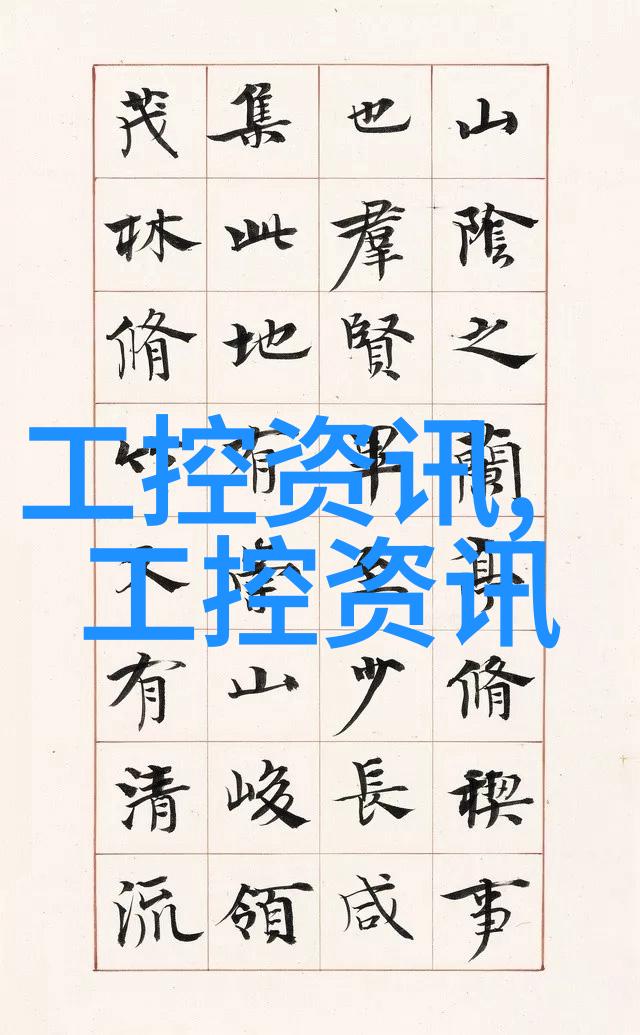 山陰之蘭亭脩稧事
也羣賢畢至少長咸
集此地有崇山峻領
茂林脩竹又有清流
工控资讯,
工控资讯